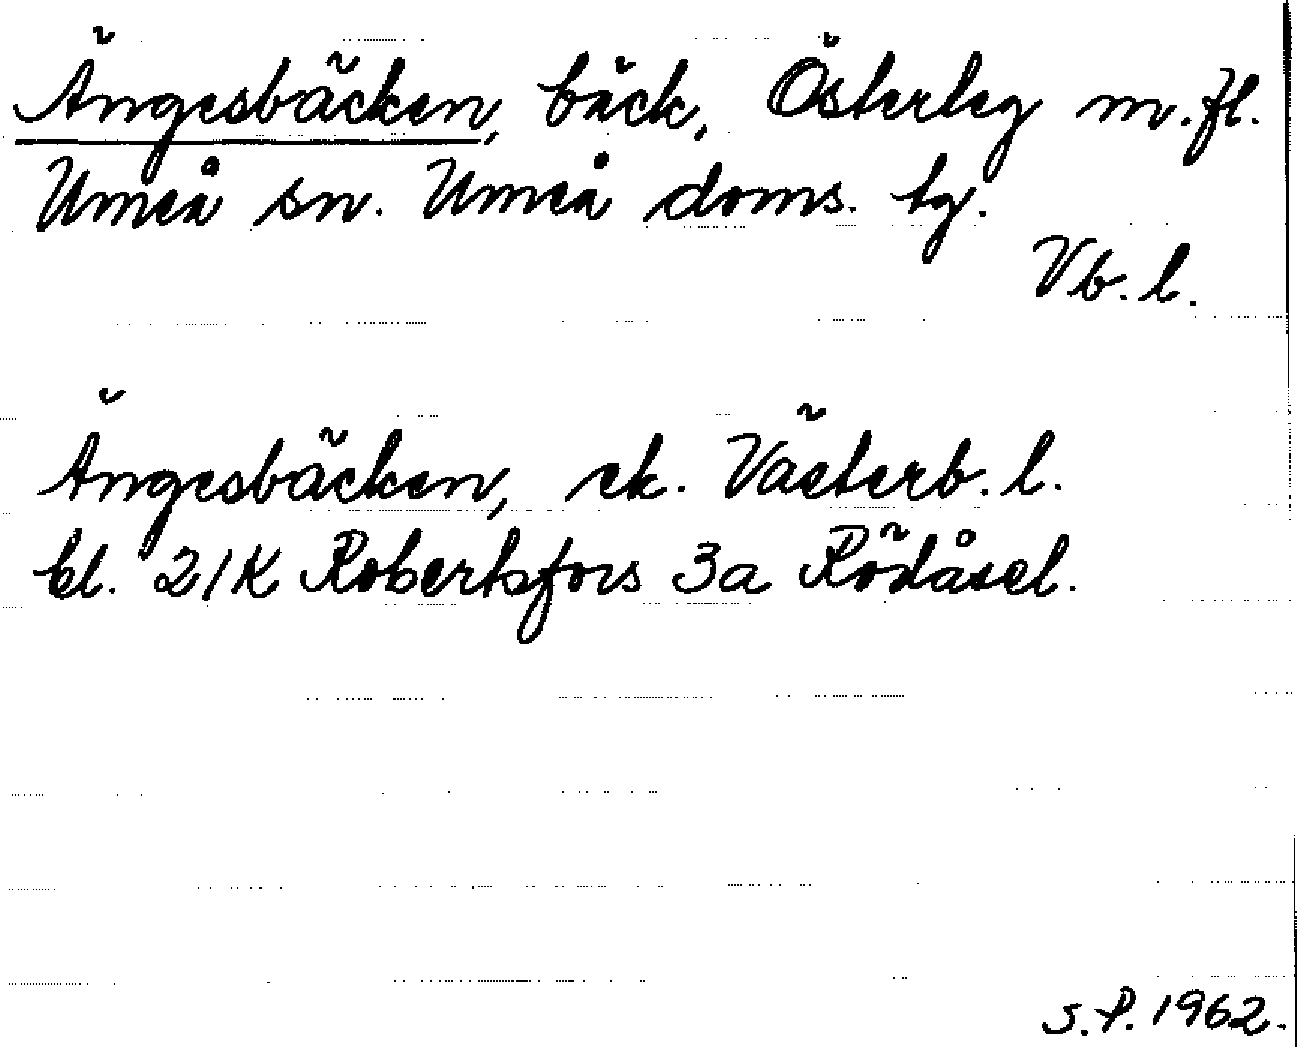 Ängesbäcken, bäck, Österleg m.fl.
Umeå sn. Umeå doms. tg.
Vb.l.
Ängesbäcken, ek. Västerb.l.
bl. 21K Robertsfors 3a Rödåsel.
S.P. 1962.